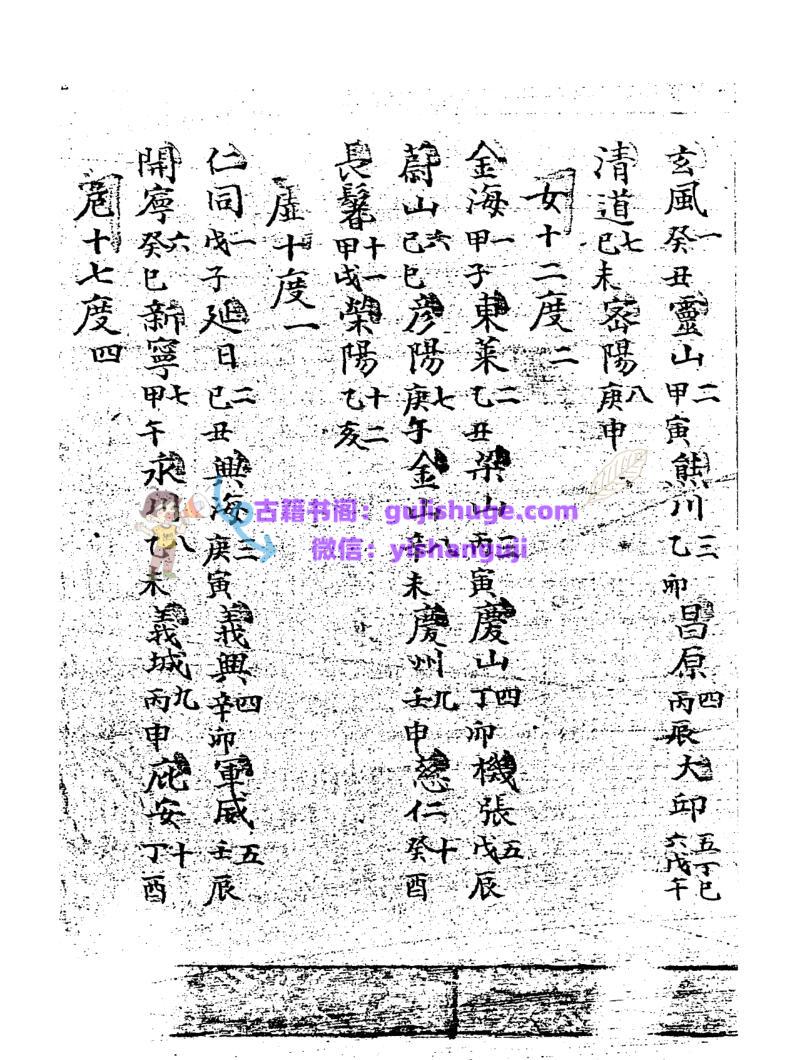 玄風一癸丑靈山二甲寅熊川三乙卯昌原四丙辰大邱五丁巳六戊午
清道七己未密陽八庚申
女十二度二
金海一甲子東萊二乙丑梁山三丙寅慶山四丁卯機張五戊辰
蔚山六己巳彦陽七庚午金山八辛未慶州九壬申慈仁十癸酉
長鬐十一甲戌榮陽十二乙亥
虛十度一
仁同一戊子延日二己丑興海三庚寅義興四辛卯軍威五壬辰
開寧六癸巳新寧七甲午永川八乙未義城九丙申庇安十丁酉
危十七度四
古籍书阁:gujishuge.com
微信:yishanguji